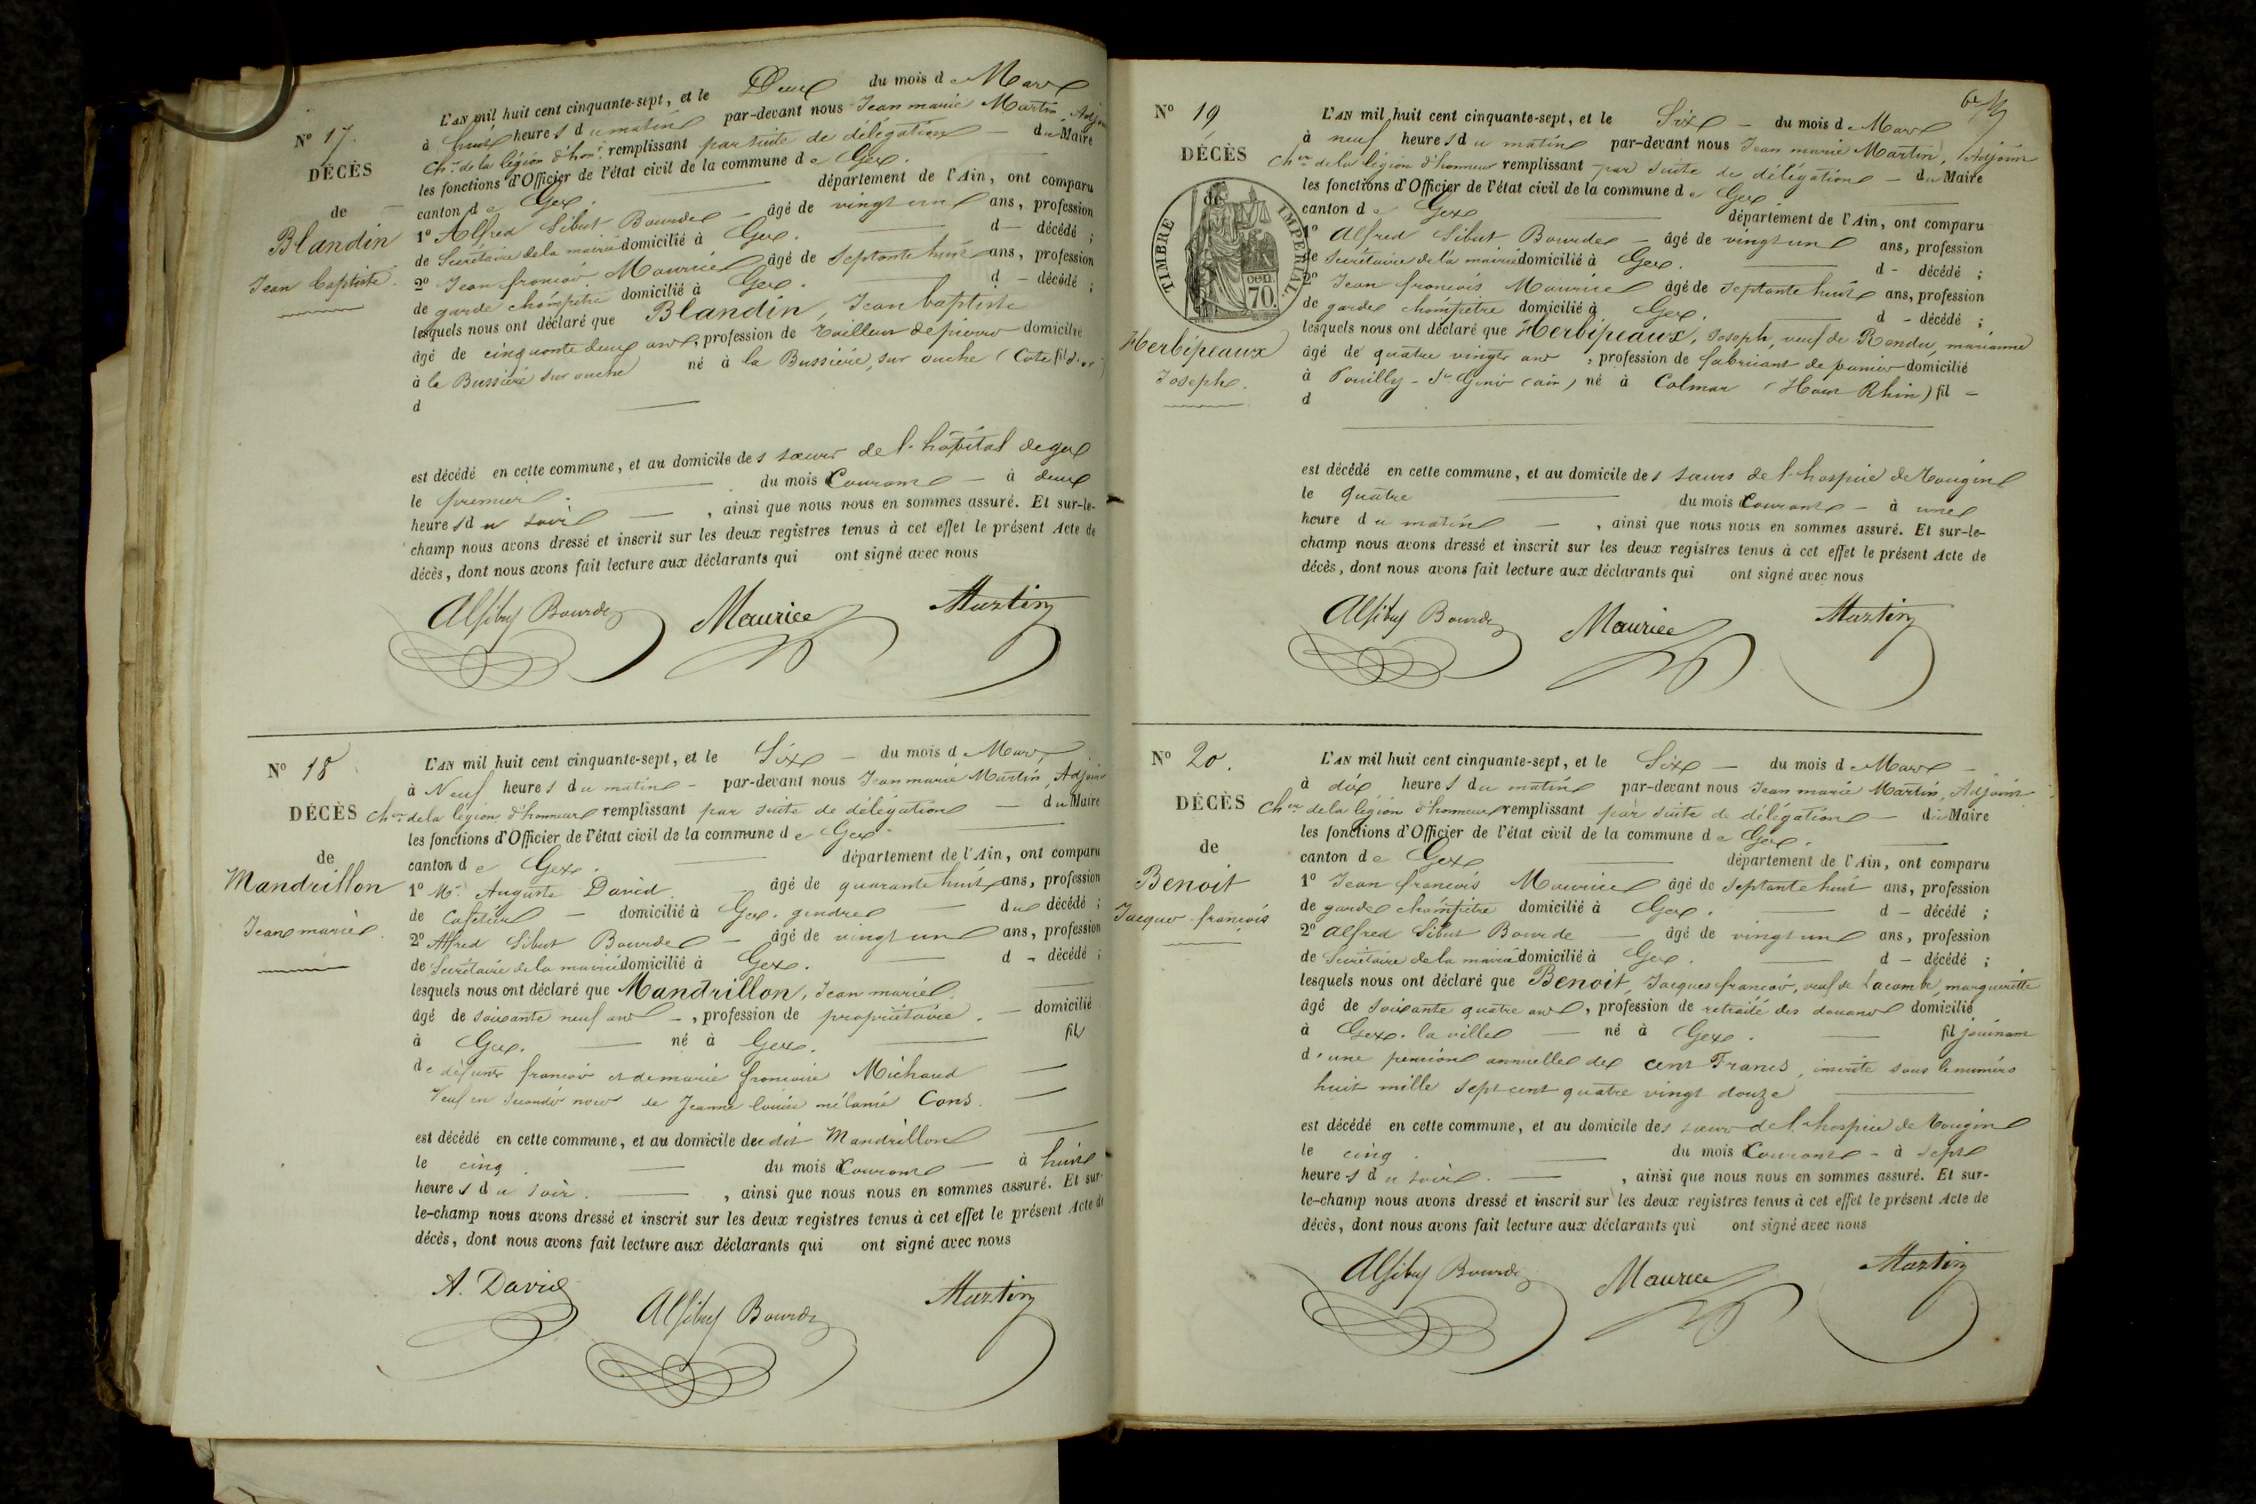 N° 17.
DÉCÈS
de
Blandin
Jean baptiste.
L'AN mil huit cent cinquante-sept, et le Deux du mois de Mars
à huit heures du matin par-devant nous Jean marie Martin Adjoint
Chr de la légion d'honr remplissant par suite de délégation du Maire
les fonctions d'Officier de l'état civil de la commune de Gex.
canton de Gex. département de l'Ain, ont comparu
1° Alfred Sibut Bourde âgé de vingt un ans, profession
de Secrétaire de la mairie domicilié à Gex. d décédé ;
2° Jean francois Maurice âgé de septante huit ans, profession
de garde champêtre domicilié à Gex. d décédé ;
lesquels nous ont déclaré que Blandin, Jean baptiste
âgé de cinquante deux ans, profession de tailleur de pierre domicilié
à la Bussière sur ouche né à la Bussière, sur ouche (Cote d'or) fil
d
est décédé en cette commune, et au domicile des sœurs de l'hôpital de gex
le premier du mois Courant à deux
heures du soir, ainsi que nous nous en sommes assuré. Et sur-le-
champ nous avons dressé et inscrit sur les deux registres tenus à cet effet le présent Acte de
décès, dont nous avons fait lecture aux déclarants qui ont signé avec nous
Alf Sibut Bourde Maurice Martin
N° 18
DÉCÈS
de
Mandrillon
Jean marie.
L'AN mil huit cent cinquante-sept, et le Six du mois de Mars
à Neuf heures du matin par-devant nous Jean marie Martin, Adjoint
Chr de la légion d'honneur remplissant par suite de délégation du Maire
les fonctions d'Officier de l'état civil de la commune de Gex.
canton de Gex. département de l'Ain, ont comparu
1° Mr Auguste David âgé de quarante huit ans, profession
de Cafetier domicilié à Gex. gendre du décédé ;
2° Alfred Sibut Bourde âgé de vingt un ans, profession
de Secrétaire de la mairie domicilié à Gex. d décédé ;
lesquels nous ont déclaré que Mandrillon, Jean marie.
âgé de soixante neuf ans, profession de propriétaire. domicilié
à Gex. né à Gex. fils
de défunts francois et de marie francoise Michaud
Veuf en secondes noces de Jeanne louise mélanie Cons.
est décédé en cette commune, et au domicile du dit Mandrillon
le cinq. du mois Courant à huit
heures du soir. , ainsi que nous nous en sommes assuré. Et sur-
le-champ nous avons dressé et inscrit sur les deux registres tenus à cet effet le présent Acte de
décès, dont nous avons fait lecture aux déclarants qui ont signé avec nous
A. David Alf Sibut Bourde Martin
N° 19
DÉCÈS
de
TIMBRE IMPERIAL.
70. cen
Herbipeaux
Joseph.
L'AN mil huit cent cinquante-sept, et le Six du mois de Mars
à neuf heures du matin par-devant nous Jean marie Martin, Adjoint
Cher de la légion d'honneur remplissant par suite de délégation du Maire
les fonctions d'Officier de l'état civil de la commune de Gex.
canton de Gex département de l'Ain, ont comparu
1° Alfred Sibut Bourde âgé de vingt un ans, profession
de Secrétaire de la mairie domicilié à Gex. d décédé ;
2° Jean francois Maurice âgé de septante huit ans, profession
de garde champêtre domicilié à Gex. d décédé ;
lesquels nous ont déclaré que Herbipeaux, Joseph, veuf de Rendu, marianne
âgé de quatre vingts ans, profession de fabricant de paniers domicilié
à Pouilly-St Genis (ain) né à Colmar (Haut Rhin) fil
d
est décédé en cette commune, et au domicile des sœurs de l'hospice de Tougin
le quatre du mois Courant à une
heure du matin, ainsi que nous nous en sommes assuré. Et sur-le-
champ nous avons dressé et inscrit sur les deux registres tenus à cet effet le présent Acte de
décès, dont nous avons fait lecture aux déclarants qui ont signé avec nous
Alf Sibut Bourde Maurice Martin
N° 20.
DÉCÈS
de
Benoit
Jacques-françois
L'AN mil huit cent cinquante-sept, et le Six du mois de Mars
à dix heures du matin par-devant nous Jean marie Martin, Adjoint
Cher de la légion d'honneur remplissant par suite de délégation du Maire
les fonctions d'Officier de l'état civil de la commune de Gex.
canton de Gex département de l'Ain, ont comparu
1° Jean francois Maurice âgé de septante huit ans, profession
de garde champêtre domicilié à Gex. d décédé ;
2° Alfred Sibut Bourde âgé de vingt un ans, profession
de Secrétaire de la mairie domicilié à Gex. d décédé ;
lesquels nous ont déclaré que Benoit, Jacques francois, veuf de Lacombe, marguerite
âgé de soixante quatre ans, profession de retraité des douanes domicilié
à Gex. la ville né à Gex. fil jouissant
d'une pension annuelle de cent Francs, inscrite sous le numéro
huit mille sept cent quatre vingt douze
est décédé en cette commune, et au domicile des sœurs de l'hospice de Tougin
le cinq. du mois Courant à sept
heures du soir. , ainsi que nous nous en sommes assuré. Et sur-
le-champ nous avons dressé et inscrit sur les deux registres tenus à cet effet le présent Acte de
décès, dont nous avons fait lecture aux déclarants qui ont signé avec nous
Alf Sibut Bourde Maurice Martin